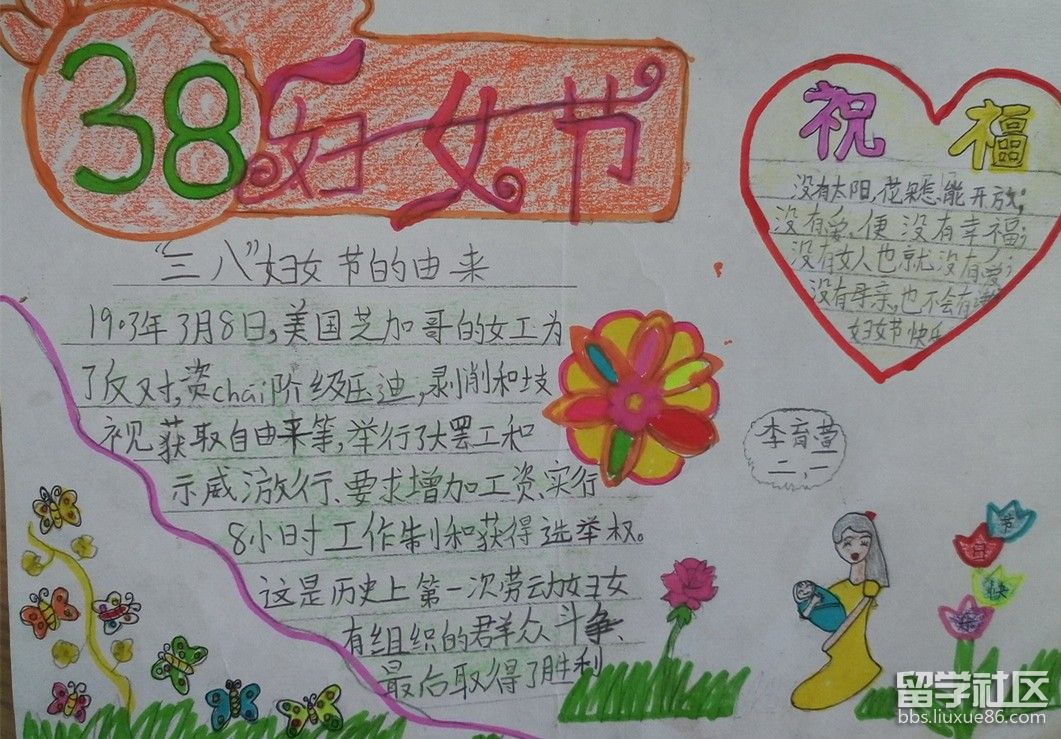 38妇女节
"三八"妇女节的由来
1903年3月8日,美国芝加哥的女工为
了反对,资chai阶级压迪,剥削和坆
视获取自由来等,举行了大罢工和
示威游放行、要求增加工资、实行
8小时工作制和获得选举权。
这是历史上第一次劳动妇女
有组织的群众斗争、
最后取得了胜利
祝福
没有太阳,花朵怎能开放;
没有爱,便没有幸福;
没有女人也就没有爱;
没有母亲,也不会有
妇女节快乐
李育萱
二,一
节
日
快
乐
留学社区
bbs.liuxue86.com